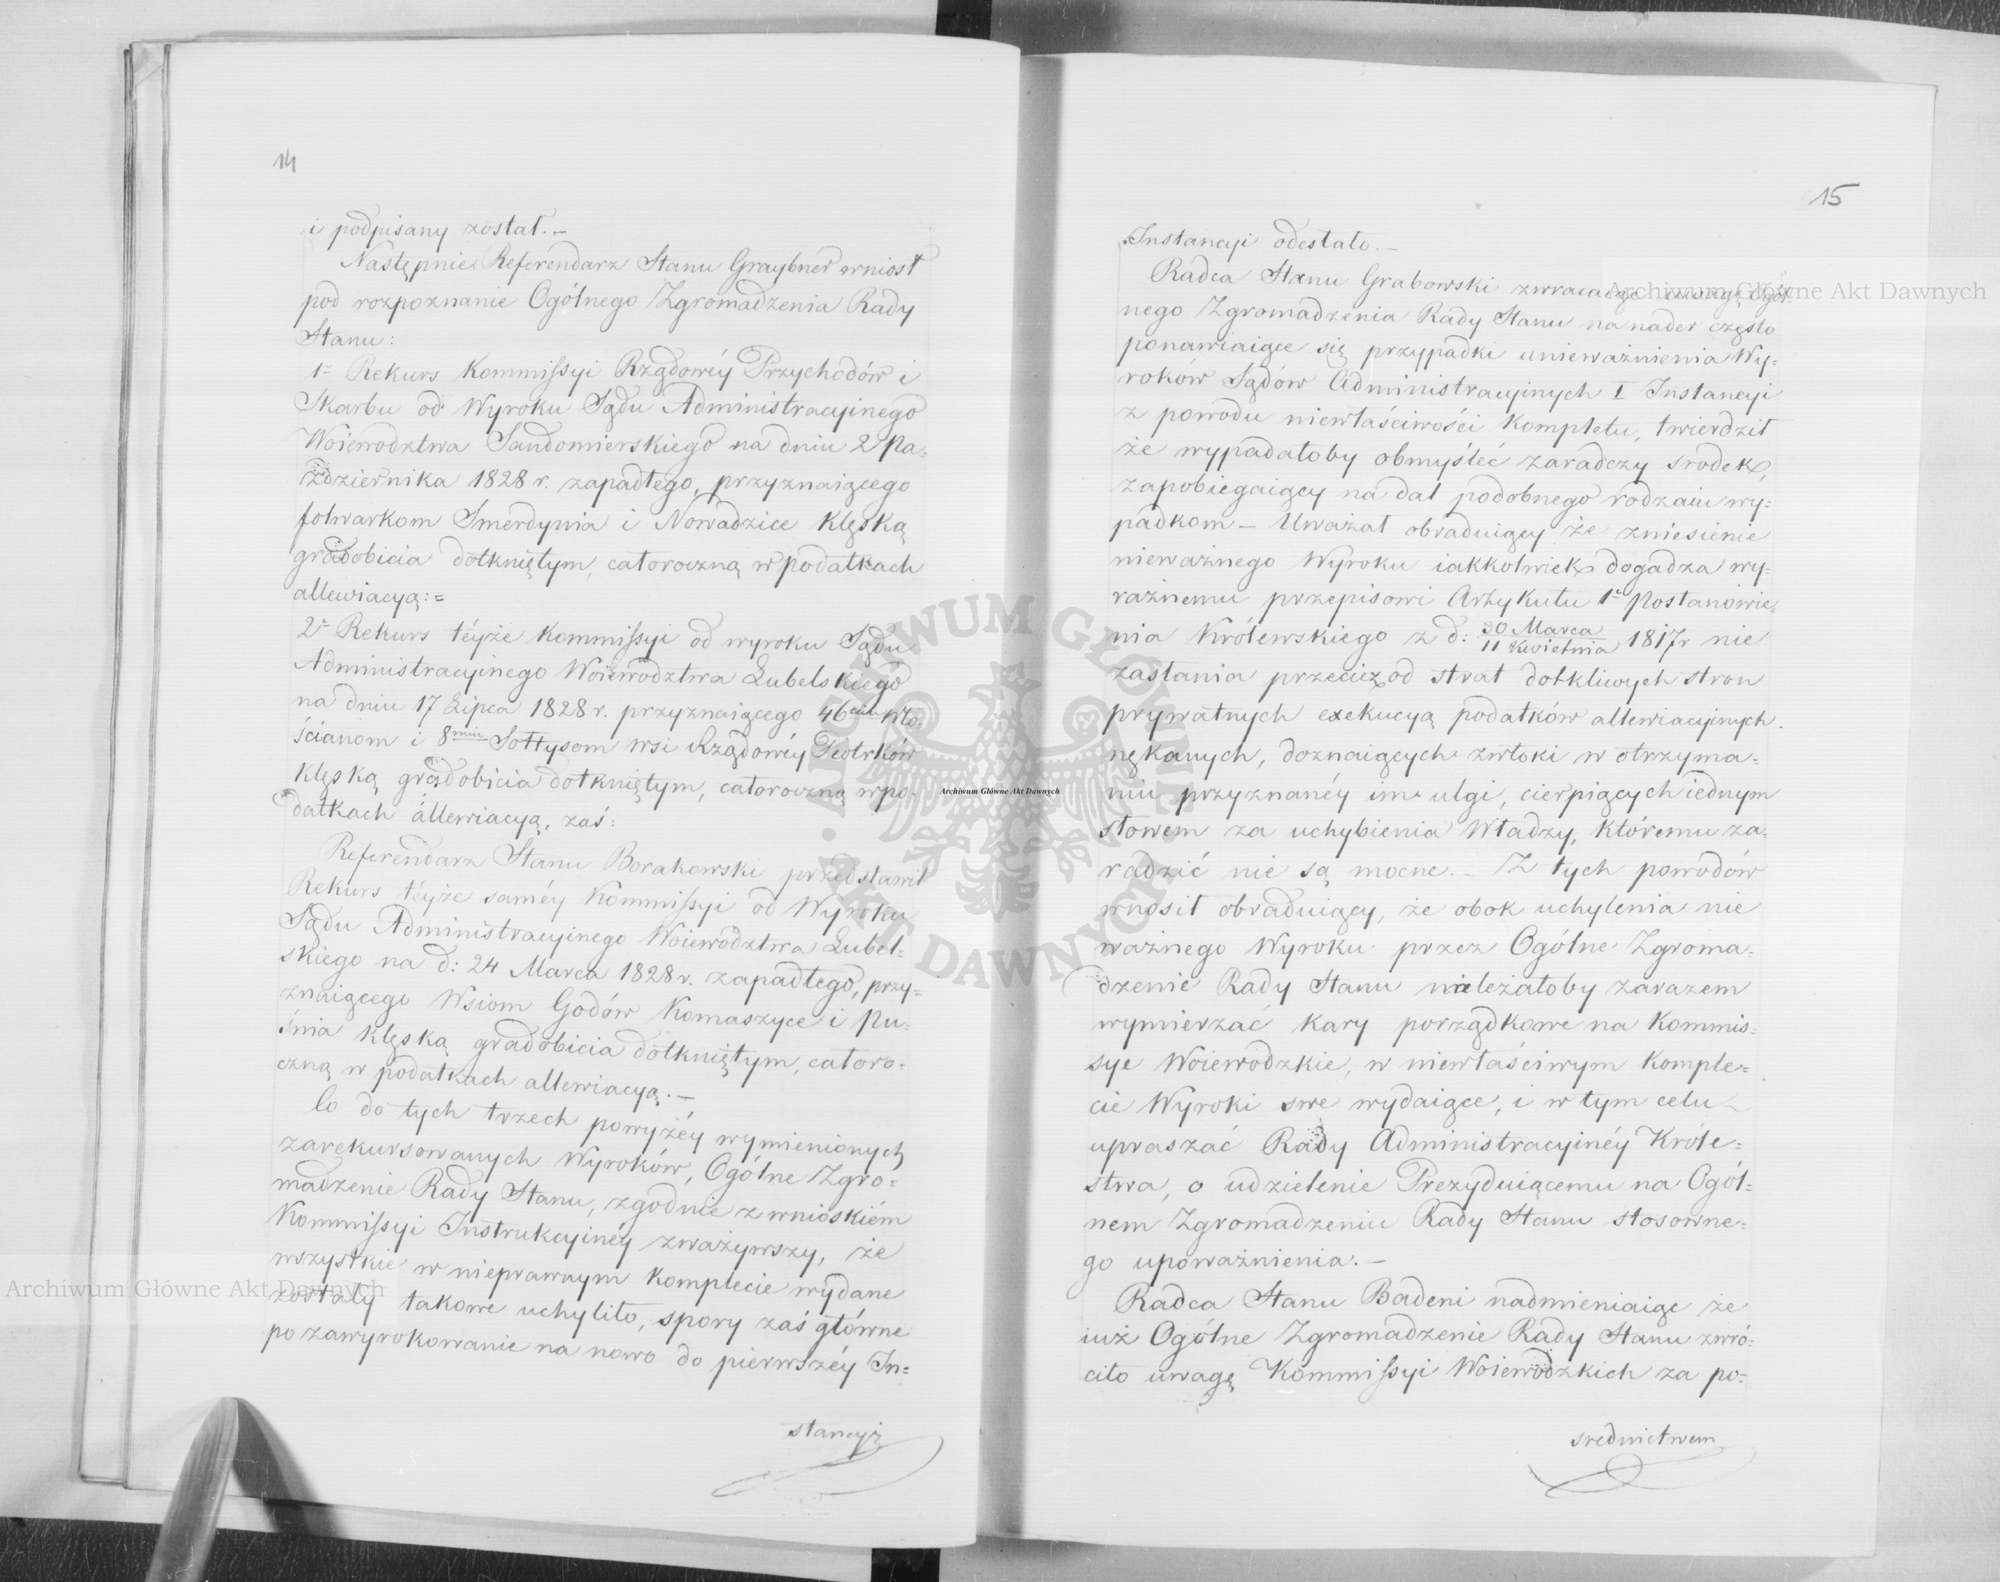 14
i podpisany został. –
Następnie Referendarz Stanu Graybner wniosł
pod rozpoznanie Ogólnego Zgromadzenia Rady
Stanu:
1° Rekurs Kommissyi Rządowéy Przychodów i
Skarbu od Wyroku Sądu Administracyinego
Woiewodztwa Sandomierskiego na dniu 2 Pa-
zdziernika 1828 r. zapadłego, przyznaiącego
folwarkom Smerdynia i Nowadzice klęską
gradobicia dotkniętym, całoroczną w podatkach
allewiacyą:=
2° Rekurs téyże Kommissyi od wyroku Sądu
Administracyinego Woiewodztwa Lubelskiego
na dniu 17 Lipca 1828 r. przyznaiącego 46ciu Wło-
ścianom i 8miu Sołtysom wsi Rządowéy Piotrków
klęską gradobicia dotkniętym, całoroczną w po-
datkach allewiacyą, zaś:
Referendarz Stanu Borakowski przedstawił
Rekurs téyże saméy Kommissyi od Wyroku
Sądu Administracyinego Woiewodztwa Lubel-
skiego na d: 24 Marca 1828 r. zapadłego, przy-
znaiącego Wsiom Godów Komaszyce i Pu-
śnia klęską gradobicia dotkniętym, całoro-
czną w podatkach allewiacyą. –
Co do tych trzech powyżéy wymienionych
zarekursowanych Wyroków, Ogólne Zgro-
madzenie Rady Stanu, zgodnie z wnioskiem
Kommissyi Instrukcyinéy zważywszy, że
wszystkie w nieprawnym komplecie wydane
zostały takowe uchyliło, spory zaś główne
po zawyrokowanie na nowo do pierwszéy In-
stancyi
15
Instancyi odesłało. –
Radca Stanu Grabowski zwracaiąc uwagę Ogól-
nego Zgromadzenia Rady Stanu na nader często
ponawiaiące się przypadki unieważnienia Wy-
roków Sądów Administracyinych I Instancyi
z powodu niewłaściwości kompletu, twierdził
że wypadałoby obmyśléć zaradczy srodek,
zapobiegaiący na dal podobnego rodzaiu wy-
padkom – Uważał obraduiący że zniesienie
nieważnego Wyroku iakkolwiek dogadza wy-
raźnemu przepisowi Artykułu 1° Postanowie-
nia Królewskiego z d: 30 Marca / 11 Kwietnia 1817 r nie
zasłania przecież od strat dotkliwych stron
prywatnych exekucyą podatków allewiacyinych
nękanych, doznaiących zwłoki w otrzyma-
niu przyznanéy im ulgi, cierpiących iednym
słowem za uchybienia Władzy, któremu za-
radzić nie są mocne. – Z tych powodów
wnosił obraduiący, że obok uchylenia nie
ważnego Wyroku przez Ogólne Zgroma-
dzenie Rady Stanu należałoby zarazem
wymierzać kary porządkowe na Kommis-
sye Woiewodzkie, w niewłaściwym komple-
cie Wyroki swe wydaiące, i w tym celu
upraszać Rady Administracyinéy Króle-
stwa, o udzielenie Prezyduiącemu na Ogól-
nem Zgromadzeniu Rady Stanu stosowne-
go upoważnienia. –
Radca Stanu Badeni nadmieniaiąc że
iuż Ogólne Zgromadzenie Rady Stanu zwró-
ciło uwagę Kommissyi Woiewodzkich za po-
srednictwem
Archiwum Główne Akt Dawnych
Archiwum Główne Akt Dawnych
Archiwum Główne Akt Dawnych
ARCHIWUM GŁÓWNE AKT DAWNYCH